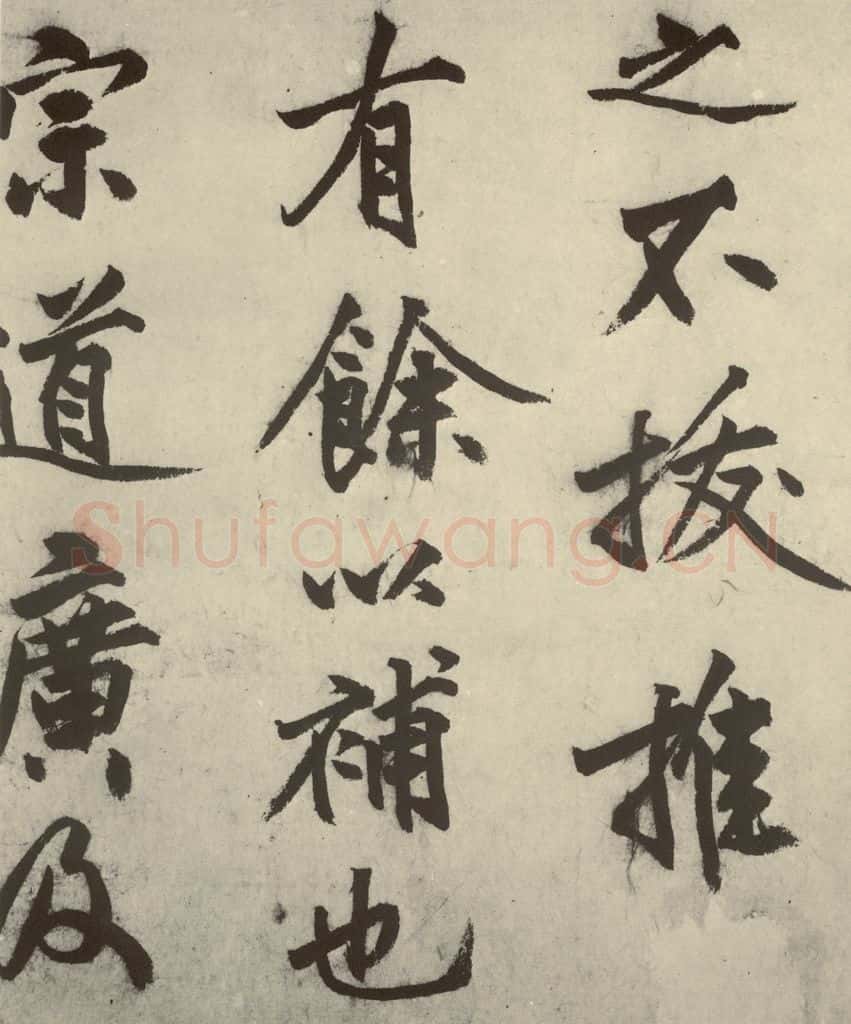 之不拔推
有餘以補也
宗道廣及
Shufawang.CN